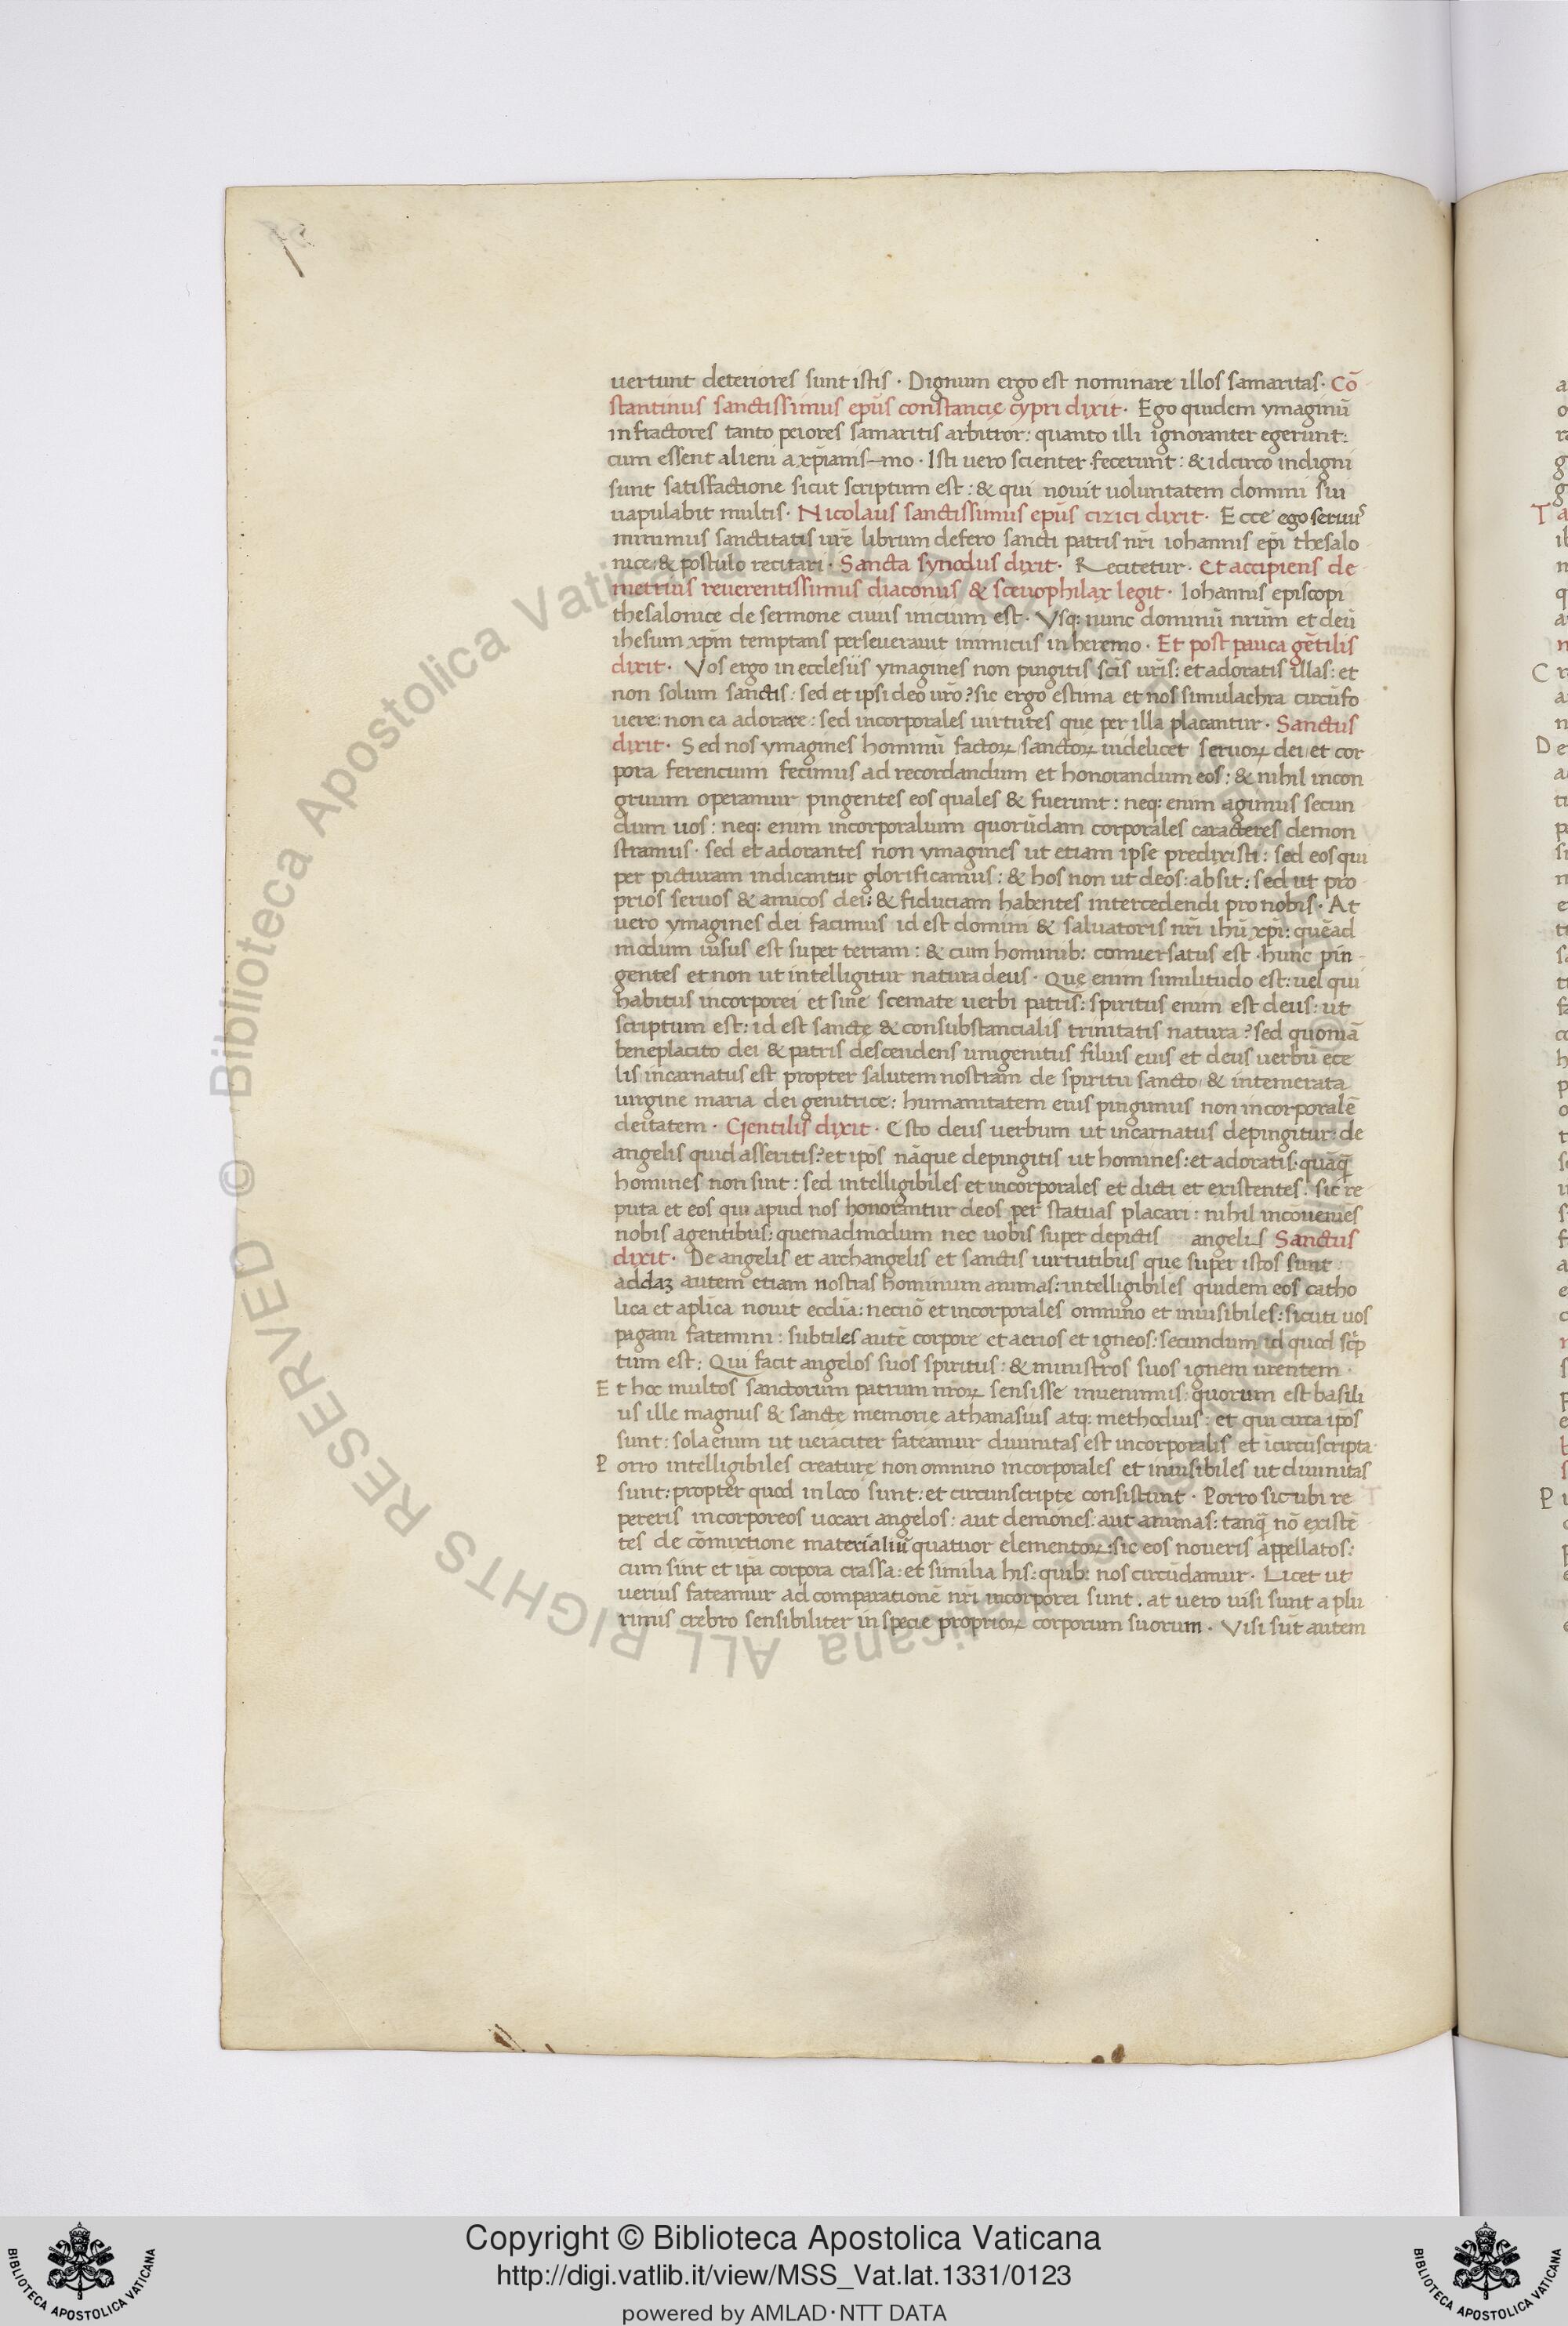 uertunt deteriores sunt istis · Dignum ergo est nominare illos samaritas · Cō
stantinus sanctissimus ep̄us constancię cypri dixit · Ego quidem ymaginū
infractores tanto peiores samaritis arbitror : quanto illi ignoranter egerunt :
cum essent alieni a xp̄ianis-mo · Isti uero scienter fecerunt : & idcirco indigni
sunt satisfactione sicut scriptum est : & qui nouit uoluntatem domini sui
uapulabit multis · Nicolaus sanctissimus ep̄us cizici dixit · Ecce ego seruus
minimus sanctitatis ur̄e librum defero sancti patris nr̄i iohannis ep̄i thesalo
nice : & postulo recitari · Sancta synodus dixit · Recitetur · Et accipiens de
metrius reuerentissimus diaconus & sceuophilax legit · Iohannis episcopi
thesalonice de sermone cuius inicium est · Vsq: nunc dominū nr̄um et deū
ihesum xp̄m temptans perseuerauit inimicus in heremo · Et post pauca gētilis
dixit · Vos ergo in ecclesiis ymagines non pingitis sc̄is ur̄is : et adoratis illas : et
non solum sanctis : sed et ipsi deo ur̄o ? sic ergo estima et nos simulachra circūfo
uere : non ea adorare : sed incorporales uirtutes que per illa placantur · Sanctus
dixit · Sed nos ymagines hominū factoꝝ sanctoꝝ uidelicet seruoꝝ dei et cor
pora ferencium fecimus ad recordandum et honorandum eos : & nihil incon
gruum operamur pingentes eos quales & fuerunt : neq: enim agimus secun
dum uos : neq: enim incorporalium quorūdam corporales caracteres demon
stramus · sed et adorantes non ymagines ut etiam ipse predixisti : sed eos qui
per picturam indicantur glorificamus : & hos non ut deos : absit : sed ut pro
prios seruos & amicos dei : & fiduciam habentes intercedendi pro nobis · At
uero ymagines dei facimus id est domini & saluatoris nr̄i ihū xp̄i : quēad
modum uisus est super terram : & cum hominib: conuersatus est · hunc pin
gentes et non ut intelligitur natura deus · Quę enim similitudo est : uel qui
habitus incorporei et sine scemate uerbi patris : spiritus enim est deus : ut
scriptum est : id est sanctę & consubstancialis trinitatis natura ? sed quoniā
beneplacito dei & patris descendens unigenitus filius eius et deus uerbū e ce
lis incarnatus est propter salutem nostram de spiritu sancto & intemerata
uirgine maria dei genitrice : humanitatem eius pingimus non incorporalē
deitatem · Gentilis dixit · Esto deus uerbum ut incarnatus depingitur : de
angelis quid asseritis ? et ip̄os nāque depingitis ut homines : et adoratis : quāq̄
homines non sint : sed intelligibiles et incorporales et dicti et existentes · sic re
puta et eos qui apud nos honorantur deos per statuas placari : nihil incōueniēs
nobis agentibus : quemadmodum nec uobis super depictis angelis Sanctus
dixit · De angelis et archangelis et sanctis uirtutibus que super istos sunt
addaꝫ autem etiam nostras hominum animas : intelligibiles quidem eos catho
lica et aplīca nouit eccl̄ia : necnō et incorporales omnino et inuisibiles : sicuti uos
pagani fatemini : subtiles autē corpore et aerios et igneos : secundum id quod sc̄p
tum est : Qui facit angelos suos spiritus : & ministros suos ignem urentem ·
Et hoc multos sanctorum patrum nr̄oꝝ sensisse inuenimus : quorum est basili
us ille magnus & sanctę memorie athanasius atq: methodius : et qui circa ip̄os
sunt : sola enim ut ueraciter fateamur diuinitas est incorporalis et ī circūscripta
Porro intelligibiles creaturę non omnino incorporales et inuisibiles ut diuinitas
sunt : propter quod in loco sunt : et circunscripte consistunt · Porro sicubi re
pereris incorporeos uocari angelos : aut demones : aut animas : tanq̄ nō existē
tes de cōmixtione materialiū quatuor elementoꝝ : sic eos noueris appellatos :
cum sint et ip̄a corpora crassa : et similia his : quib: nos circūdamur · Licet ut
uerius fateamur ad comparationē nr̄i incorporei sunt . at uero uisi sunt a plu
rimis crebro sensibiliter in specie proprioꝝ corporum suorum · Visi sūt autem
© Biblioteca Apostolica Vaticana ALL RIGHTS RESERVED
Copyright © Biblioteca Apostolica Vaticana
http://digi.vatlib.it/view/MSS_Vat.lat.1331/0123
powered by AMLAD·NTT DATA
BIBLIOTECA APOSTOLICA VATICANA
BIBLIOTECA APOSTOLICA VATICANA